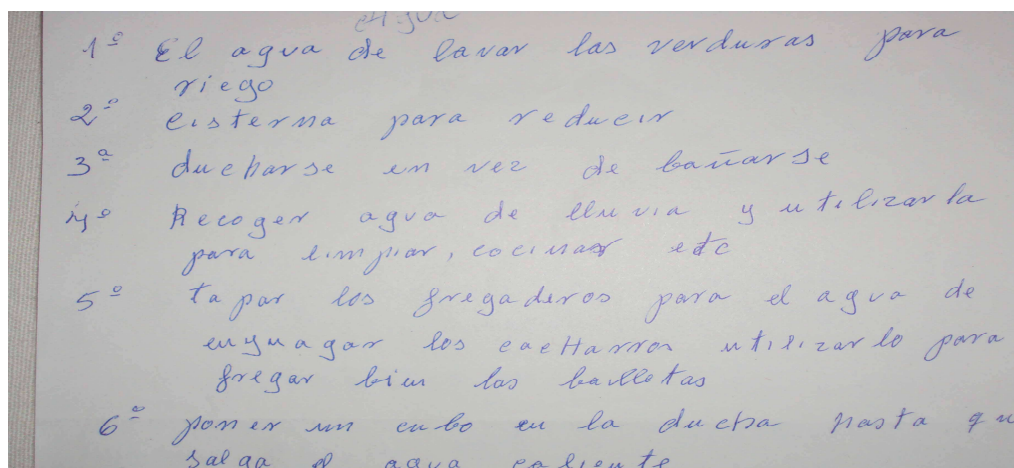 Agua
1º El agua de lavar las verduras para
riego
2º cisterna para reducir
3º ducharse en vez de bañarse
4º Recoger agua de lluvia y utilizarla
para limpiar, cocinar etc
5º tapar los fregaderos para el agua de
enjuagar los cacHarros utilizarlo para
fregar bien las balletas
6º poner un cubo en la ducha hasta qu
salga el agua caliente